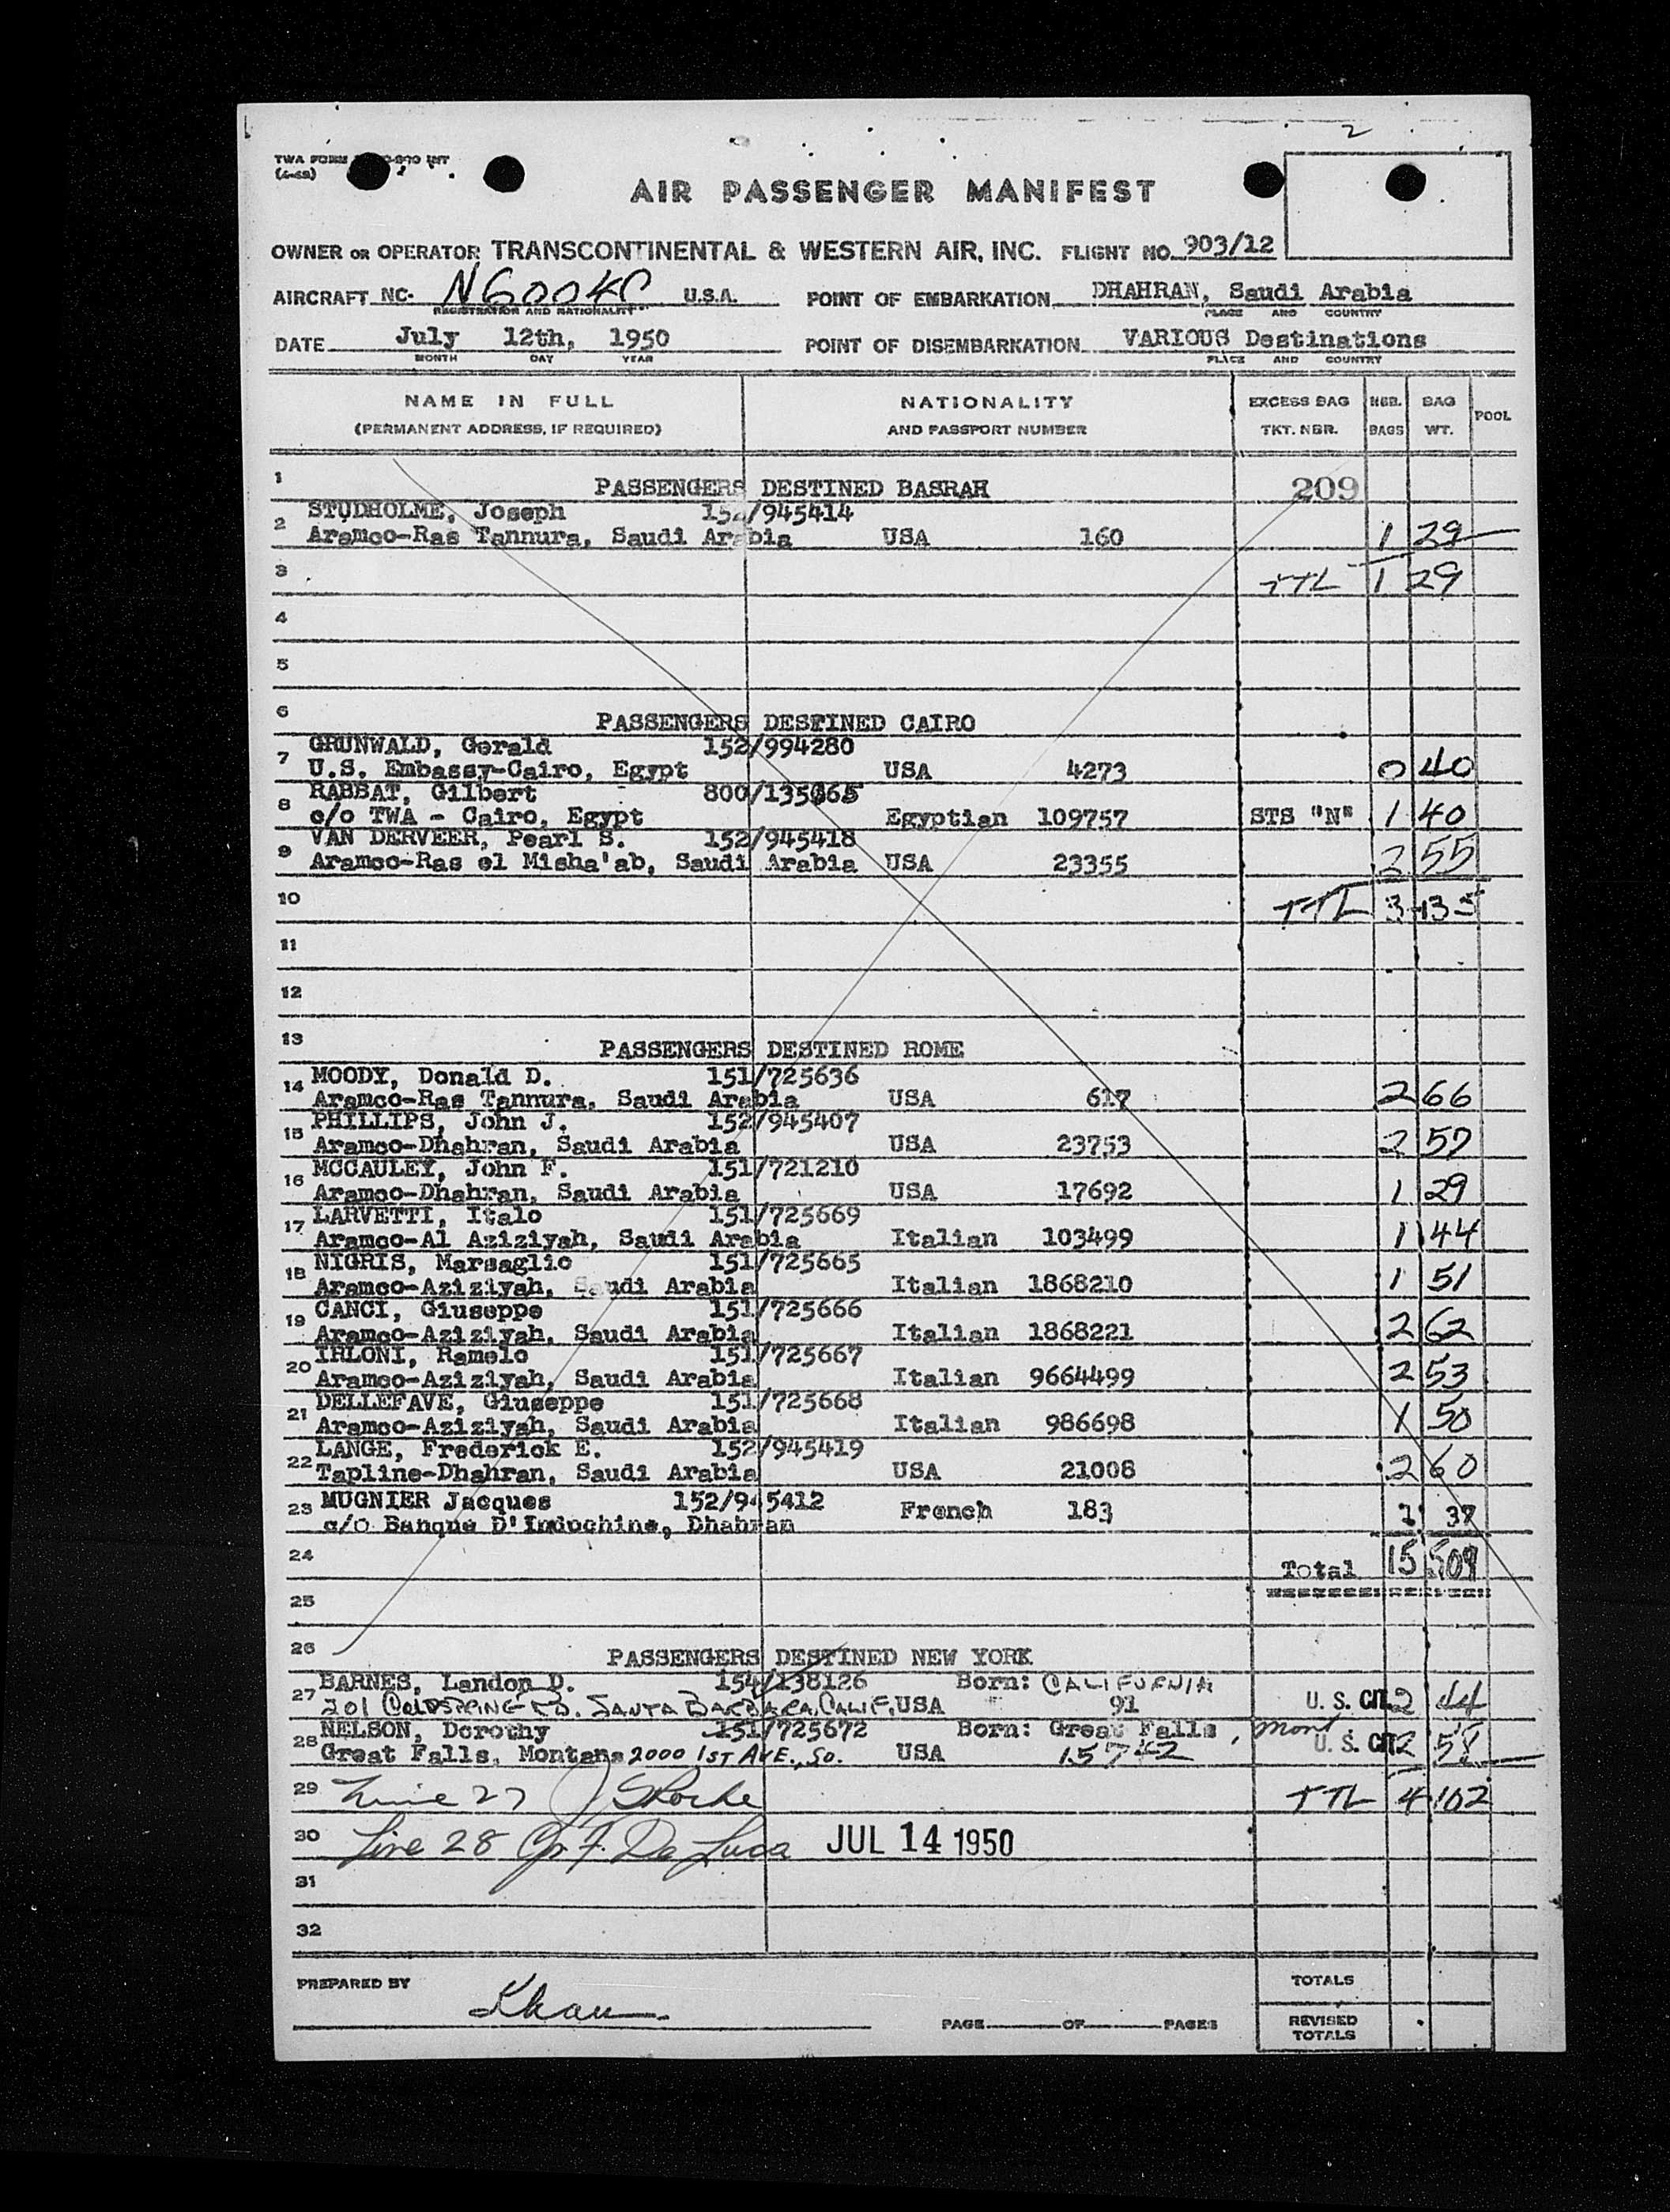 2
TWA FORM
(4-48)
AIR PASSENGER MANIFEST
OWNER OR OPERATOR TRANSCONTINENTAL & WESTERN AIR, INC. FLIGHT NO. 903/12
AIRCRAFT NC- N6004C U.S.A. POINT OF EMBARKATION DHAHRAN, Saudi Arabia
REGISTRATION AND NATIONALITY PLACE AND COUNTRY
DATE July 12th, 1950 POINT OF DISEMBARKATION VARIOUS Destinations
MONTH DAY YEAR PLACE AND COUNTRY
NAME IN FULL NATIONALITY EXCESS BAG NBR. BAG POOL
(PERMANENT ADDRESS, IF REQUIRED) AND PASSPORT NUMBER TKT. NBR. BAGS WT.
1 PASSENGERS DESTINED BASRAH 209
STUDHOLME, Joseph 152/945414
2 Aramco-Ras Tannura, Saudi Arabia USA 160 1 29
3 TTL 1 29
4
5
6 PASSENGERS DESTINED CAIRO
GRUNWALD, Gerald 152/994280
7 U.S. Embassy-Cairo, Egypt USA 4273 0 40
RABBAT, Gilbert 800/135065
8 c/o TWA - Cairo, Egypt Egyptian 109757 STS "N" 1 40
VAN DERVEER, Pearl S. 152/945418
9 Aramco-Ras el Misha'ab, Saudi Arabia USA 23355 2 55
10 TTL 3 135
11
12
13 PASSENGERS DESTINED ROME
MOODY, Donald D. 151/725636
14 Aramco-Ras Tannura, Saudi Arabia USA 617 2 66
PHILLIPS, John J. 152/945407
15 Aramco-Dhahran, Saudi Arabia USA 23753 2 57
MCCAULEY, John F. 151/721210
16 Aramco-Dhahran, Saudi Arabia USA 17692 1 29
LARVETTI, Italo 151/725669
17 Aramco-Al Aziziyah, Saudi Arabia Italian 103499 1 44
NIGRIS, Marsaglio 151/725665
18 Aramco-Aziziyah, Saudi Arabia Italian 1868210 1 51
CANCI, Giuseppe 151/725666
19 Aramco-Aziziyah, Saudi Arabia Italian 1868221 2 62
IRLONI, Ramelo 151/725667
20 Aramco-Aziziyah, Saudi Arabia Italian 9664499 2 53
DELLEFAVE, Giuseppe 151/725668
21 Aramco-Aziziyah, Saudi Arabia Italian 986698 1 50
LANGE, Frederick E. 152/945419
22 Tapline-Dhahran, Saudi Arabia USA 21008 2 60
MUGNIER Jacques 152/945412
23 c/o Banque D'Indochine, Dhahran French 183 1 37
24 Total 15 509
25
26 PASSENGERS DESTINED NEW YORK
BARNES, Landon D. 154/138126 Born: CALIFORNIA
27 201 COLDSPRING RD. SANTA BARBARA, CALIF. USA 91 U. S. CIT. 2 44
NELSON, Dorothy 151/725672 Born: Great Falls, Mont.
28 Great Falls, Montana 2000 1ST AVE., SO. USA 15742 U. S. CIT. 2 58
29 Line 27 TTL 4 102
30 Line 28 De Luca JUL 14 1950
31
32
PREPARED BY Khan TOTALS
PAGE OF PAGES REVISED TOTALS